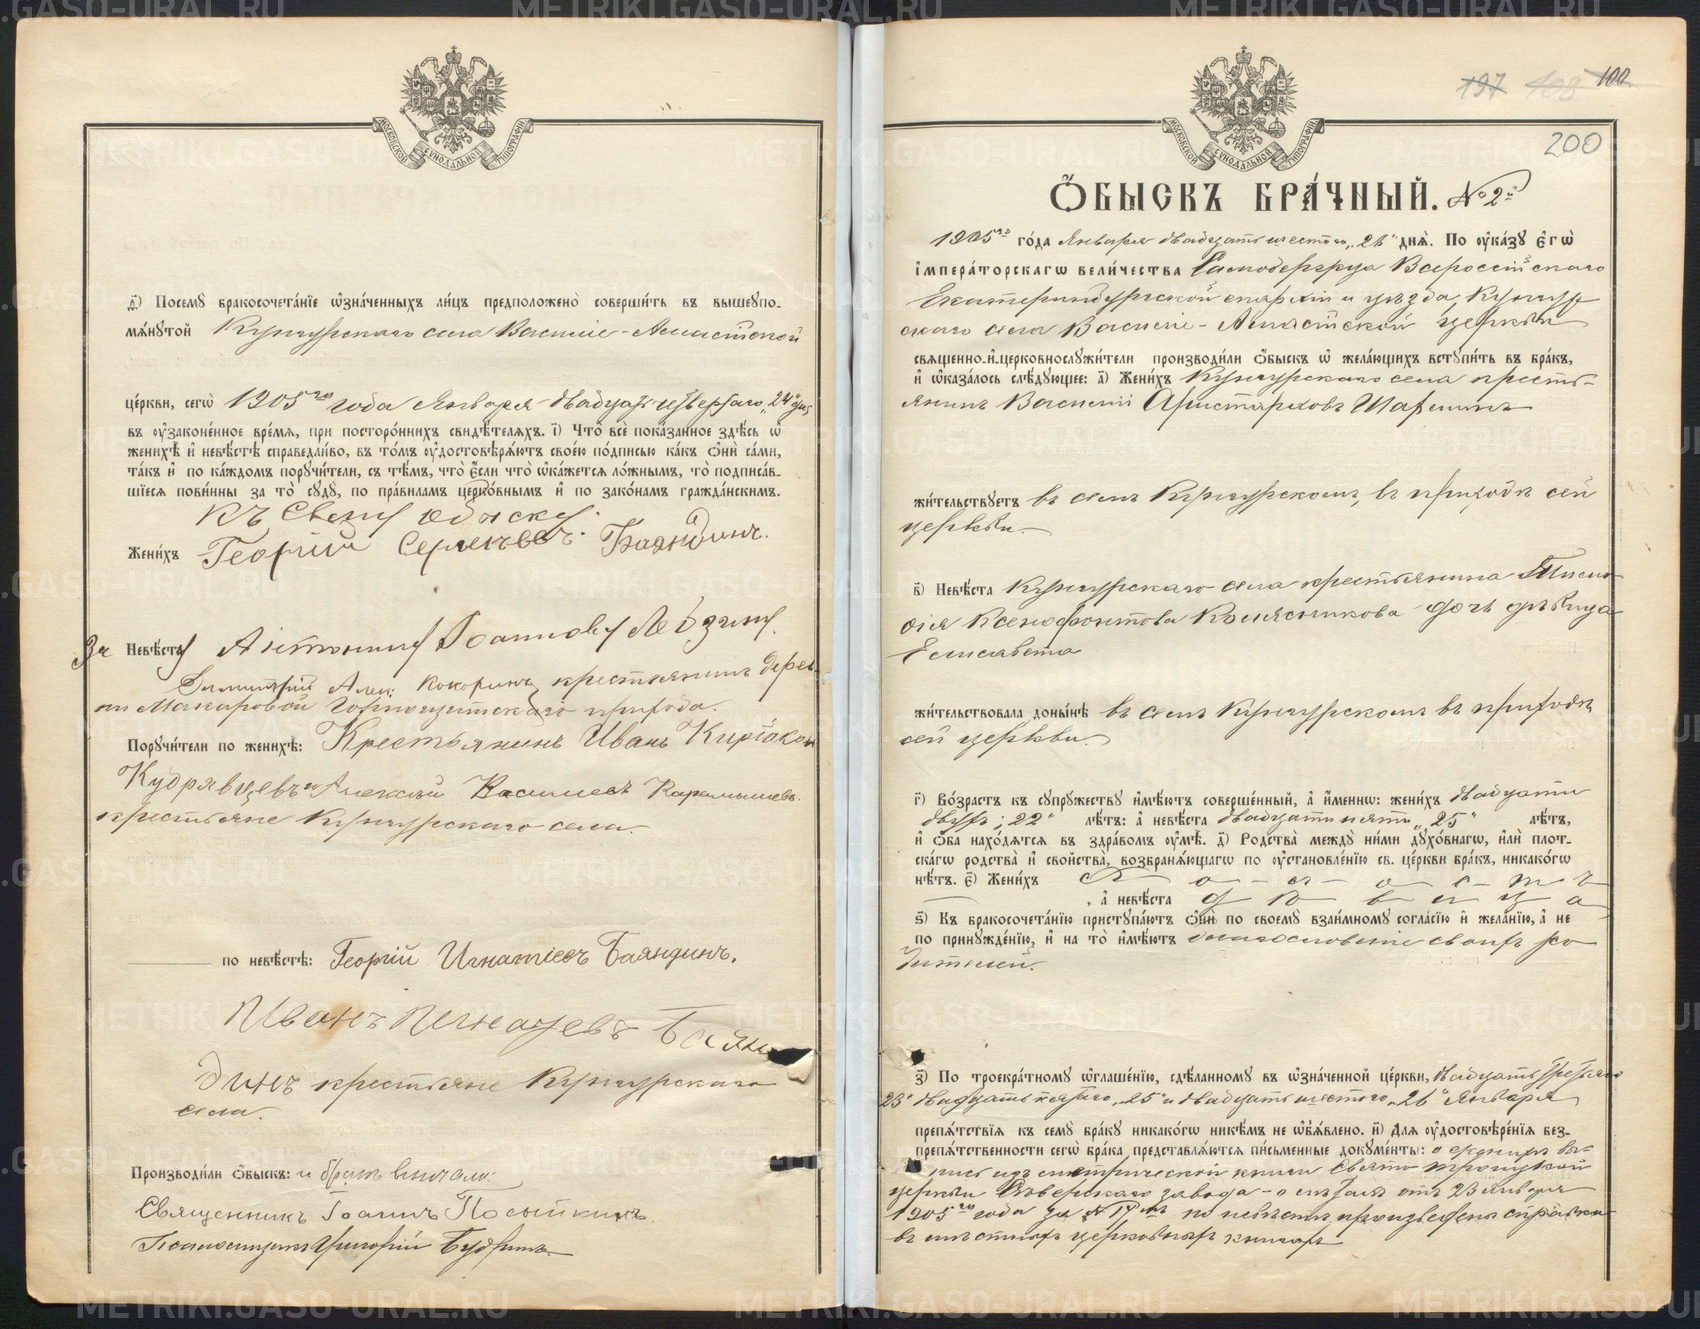 МОСКОВСКОЙ СѴНОДАЛЬНОЙ ТИПОГРАФІИ
д҃) Посемꙋ бракосочета́нїе ѡ҆зна́ченныхъ ли́цъ предположено̀ соверши́ть въ вышеꙋпо-
мѧ́нꙋтой Кунгурскаго села Василіе-
це́ркви, сегѡ̀ 1905го года Января двадцать четвертаго „24" дня
въ ᲂу҆зако́ненное вре́мѧ, при посторо́ннихъ свидѣ́телѧхъ. і҃) Что̀ всѐ пока́занное здѣ́сь ѡ҆
женихѣ̀ и҆ невѣ́стѣ справедли́во, въ то́мъ ᲂу҆достовѣрѧ́ютъ свое́ю по́дписью ка́къ ѻ҆нѝ са́ми,
та́къ и҆ по ка́ждомъ порꙋчи́тели, съ тѣ́мъ, что̀ є҆́сли что̀ ѡ҆ка́жетсѧ ло́жнымъ, то̀ подписа́в-
шїесѧ пови́нны за то̀ сꙋдꙋ̀, по пра́виламъ церко́внымъ и҆ по зако́намъ гражда́нскимъ.
Къ Сему обыску
Жени́хъ Георгій Сергѣевъ Баяндинъ.
За Невѣ́сту Антонину Іоаннову
Димитрій Алек. Кокоринъ, крестьянинъ дерев-
ни Макаровой прихода.
Порꙋчи́тели по женихѣ̀: Крестьянинъ Иванъ
Кудрявцевъ и Алексѣй Васильевъ Карамышевъ
крестьяне Кунгурскаго села.
по невѣ́стѣ: Георгій Игнатіевъ Баяндинъ.
Иванъ Игнатьевъ Баян
динъ крестьяне Кунгурскаго
села.
Производи́ли ѻ҆́быскъ: и бракъ вѣнчали:
Священникъ Іоаннъ
Псаломщикъ Григорій Будринъ
197 100
200
МОСКОВСКОЙ СѴНОДАЛЬНОЙ ТИПОГРАФІИ
Ѻ҆́БЫСКЪ БРА́ЧНЫЙ. №2й
1905го го́да Января двадцать шестого „26" днѧ̀. По ᲂу҆ка́зꙋ є҆гѡ̀
і҆мпера́торскагѡ вели́чества Самодержца Всероссійскаго
Екатеринбургской епархіи и уѣзда, Кунгур
скаго села Василіе- церкви
свѧще́нно-и҆-церковнослꙋжи́тели производи́ли ѻ҆́быскъ ѡ҆ жела́ющихъ встꙋпи́ть въ бра́къ,
и҆ ѡ҆каза́лось слѣ́дꙋющее: а҃) Жени́хъ Кунгурскаго села кресть-
янинъ Василій Аристарховъ
жи́тельствꙋетъ въ селѣ Кунгурскомъ, въ приходѣ сей
церкви.
в҃) Невѣ́ста Кунгурскаго села крестьянина
Ксенофонтова Колясникова дочь дѣвица
Елисавета
жи́тельствовала доны́нѣ въ селѣ Кунгурскомъ въ приходѣ
сей церкви.
г҃) Во́зрастъ къ сꙋпрꙋ́жествꙋ и҆мѣ́ютъ соверше́нный, а҆ и҆́меннѡ: жени́хъ двадцати
двухъ „22" лѣ́тъ: а҆ невѣ́ста двадцати пяти „25" лѣ́тъ,
и҆ ѻ҆́ба нахо́дѧтсѧ въ здра́вомъ ᲂу҆мѣ̀. д҃) Родства̀ междꙋ̀ ни́ми дꙋхо́внагѡ, и҆лѝ плот-
ска́гѡ родства̀ и҆ сво́йства, возбранѧ́ющагѡ по ᲂу҆становле́нїю св. це́ркви бра́къ, никако́гѡ
нѣ́тъ. є҃) Жени́хъ холостъ
, а҆ невѣ́ста дѣвица
ѕ҃) Къ бракосочета́нїю пристꙋпа́ютъ ѻ҆нѝ по своемꙋ̀ взаи́мномꙋ согла́сїю и҆ жела́нїю, а҆ не
по принꙋжде́нїю, и҆ на то̀ и҆мѣ́ютъ благословеніе своихъ ро
дителей.
з҃) По троекра́тномꙋ ѡ҆глаше́нїю, сдѣ́ланномꙋ въ ѡ҆зна́ченной це́ркви, двадцать третьяго
23" двадцать пятаго „25" и двадцать шестого „26" Января
препѧ́тствїѧ къ семꙋ̀ бра́кꙋ никако́гѡ никѣ́мъ не ѡ҆б̾ѧ́влено. и҃) Длѧ ᲂу҆достовѣре́нїѧ без-
препѧ́тственности сегѡ̀ бра́ка представлѧ́ютсѧ пи́сьменные докꙋме́нты: о женихѣ вы-
пись изъ метрической книги Свято Троицкой
церкви завода - о невѣстѣ отъ 23 Января
1905го года за № 17мъ по невѣстѣ произведена справка
въ мѣстныхъ церковныхъ книгахъ
METRIKI.GASO-URAL.RU